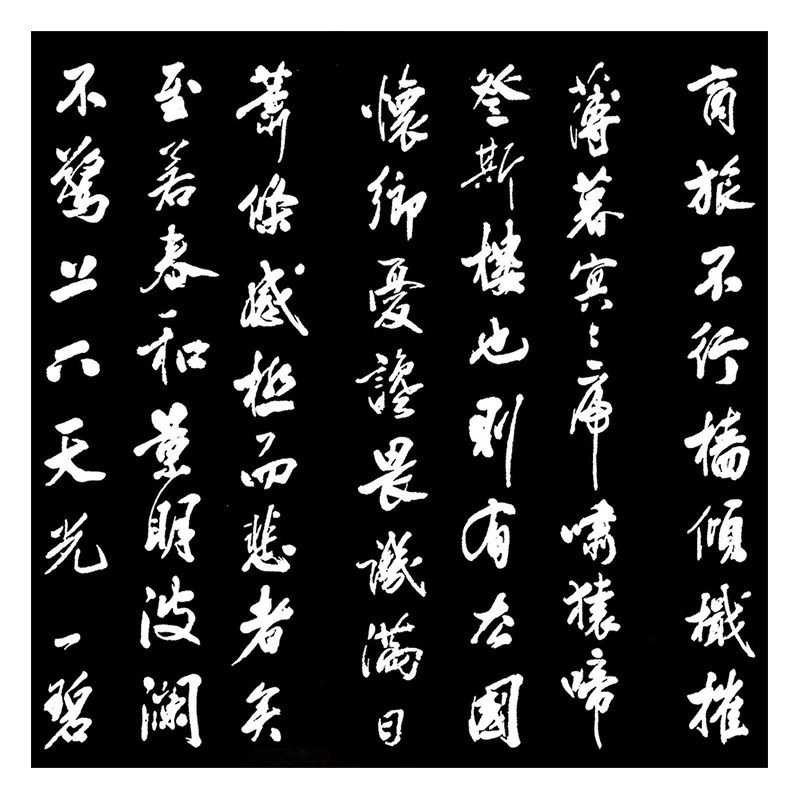 商旅不行檣傾檝摧
薄暮冥〻虎嘯猿啼
登斯樓也則有去國
懷鄉憂讒畏譏滿目
蕭條感極而悲者矣
至若春和景明波瀾
不驚上下天光一碧